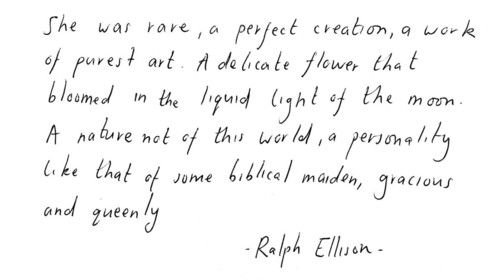 She was rare, a perfect creation, a work
of purest art. A delicate flower that
bloomed in the liquid light of the moon.
A nature not of this world, a personality
like that of some biblical maiden, gracious
and queenly
- Ralph Ellison -